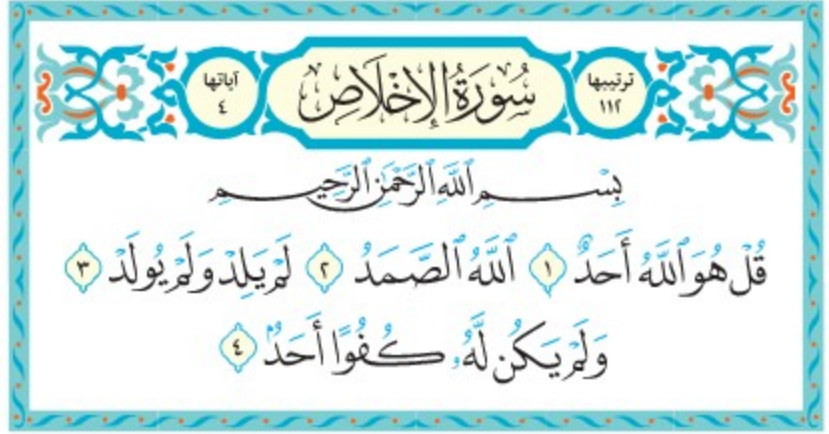 ترتيبها ١١٢
سُورَةُ الإِخْلَاصِ
آياتها ٤
بِسْمِ ٱللَّهِ ٱلرَّحْمَٰنِ ٱلرَّحِيمِ
قُلْ هُوَ ٱللَّهُ أَحَدٌ ١ ٱللَّهُ ٱلصَّمَدُ ٢ لَمْ يَلِدْ وَلَمْ يُولَدْ ٣
وَلَمْ يَكُن لَّهُۥ كُفُوًا أَحَدٌۢ ٤